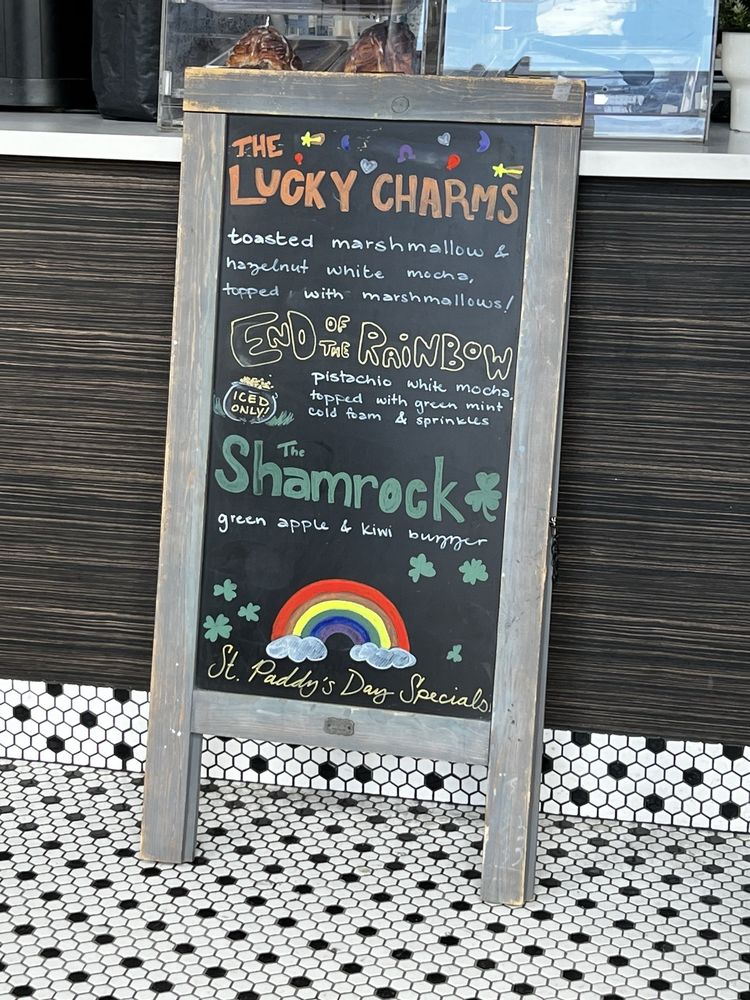 THE
LUCKY CHARMS
toasted marshmallow &
hazelnut white mocha,
topped with marshmallows!
END OF THE RAINBOW
ICED
ONLY!
pistachio white mocha,
topped with green mint
cold foam & sprinkles
The
Shamrock
green apple & kiwi buzzer
St. Paddy's Day Specials